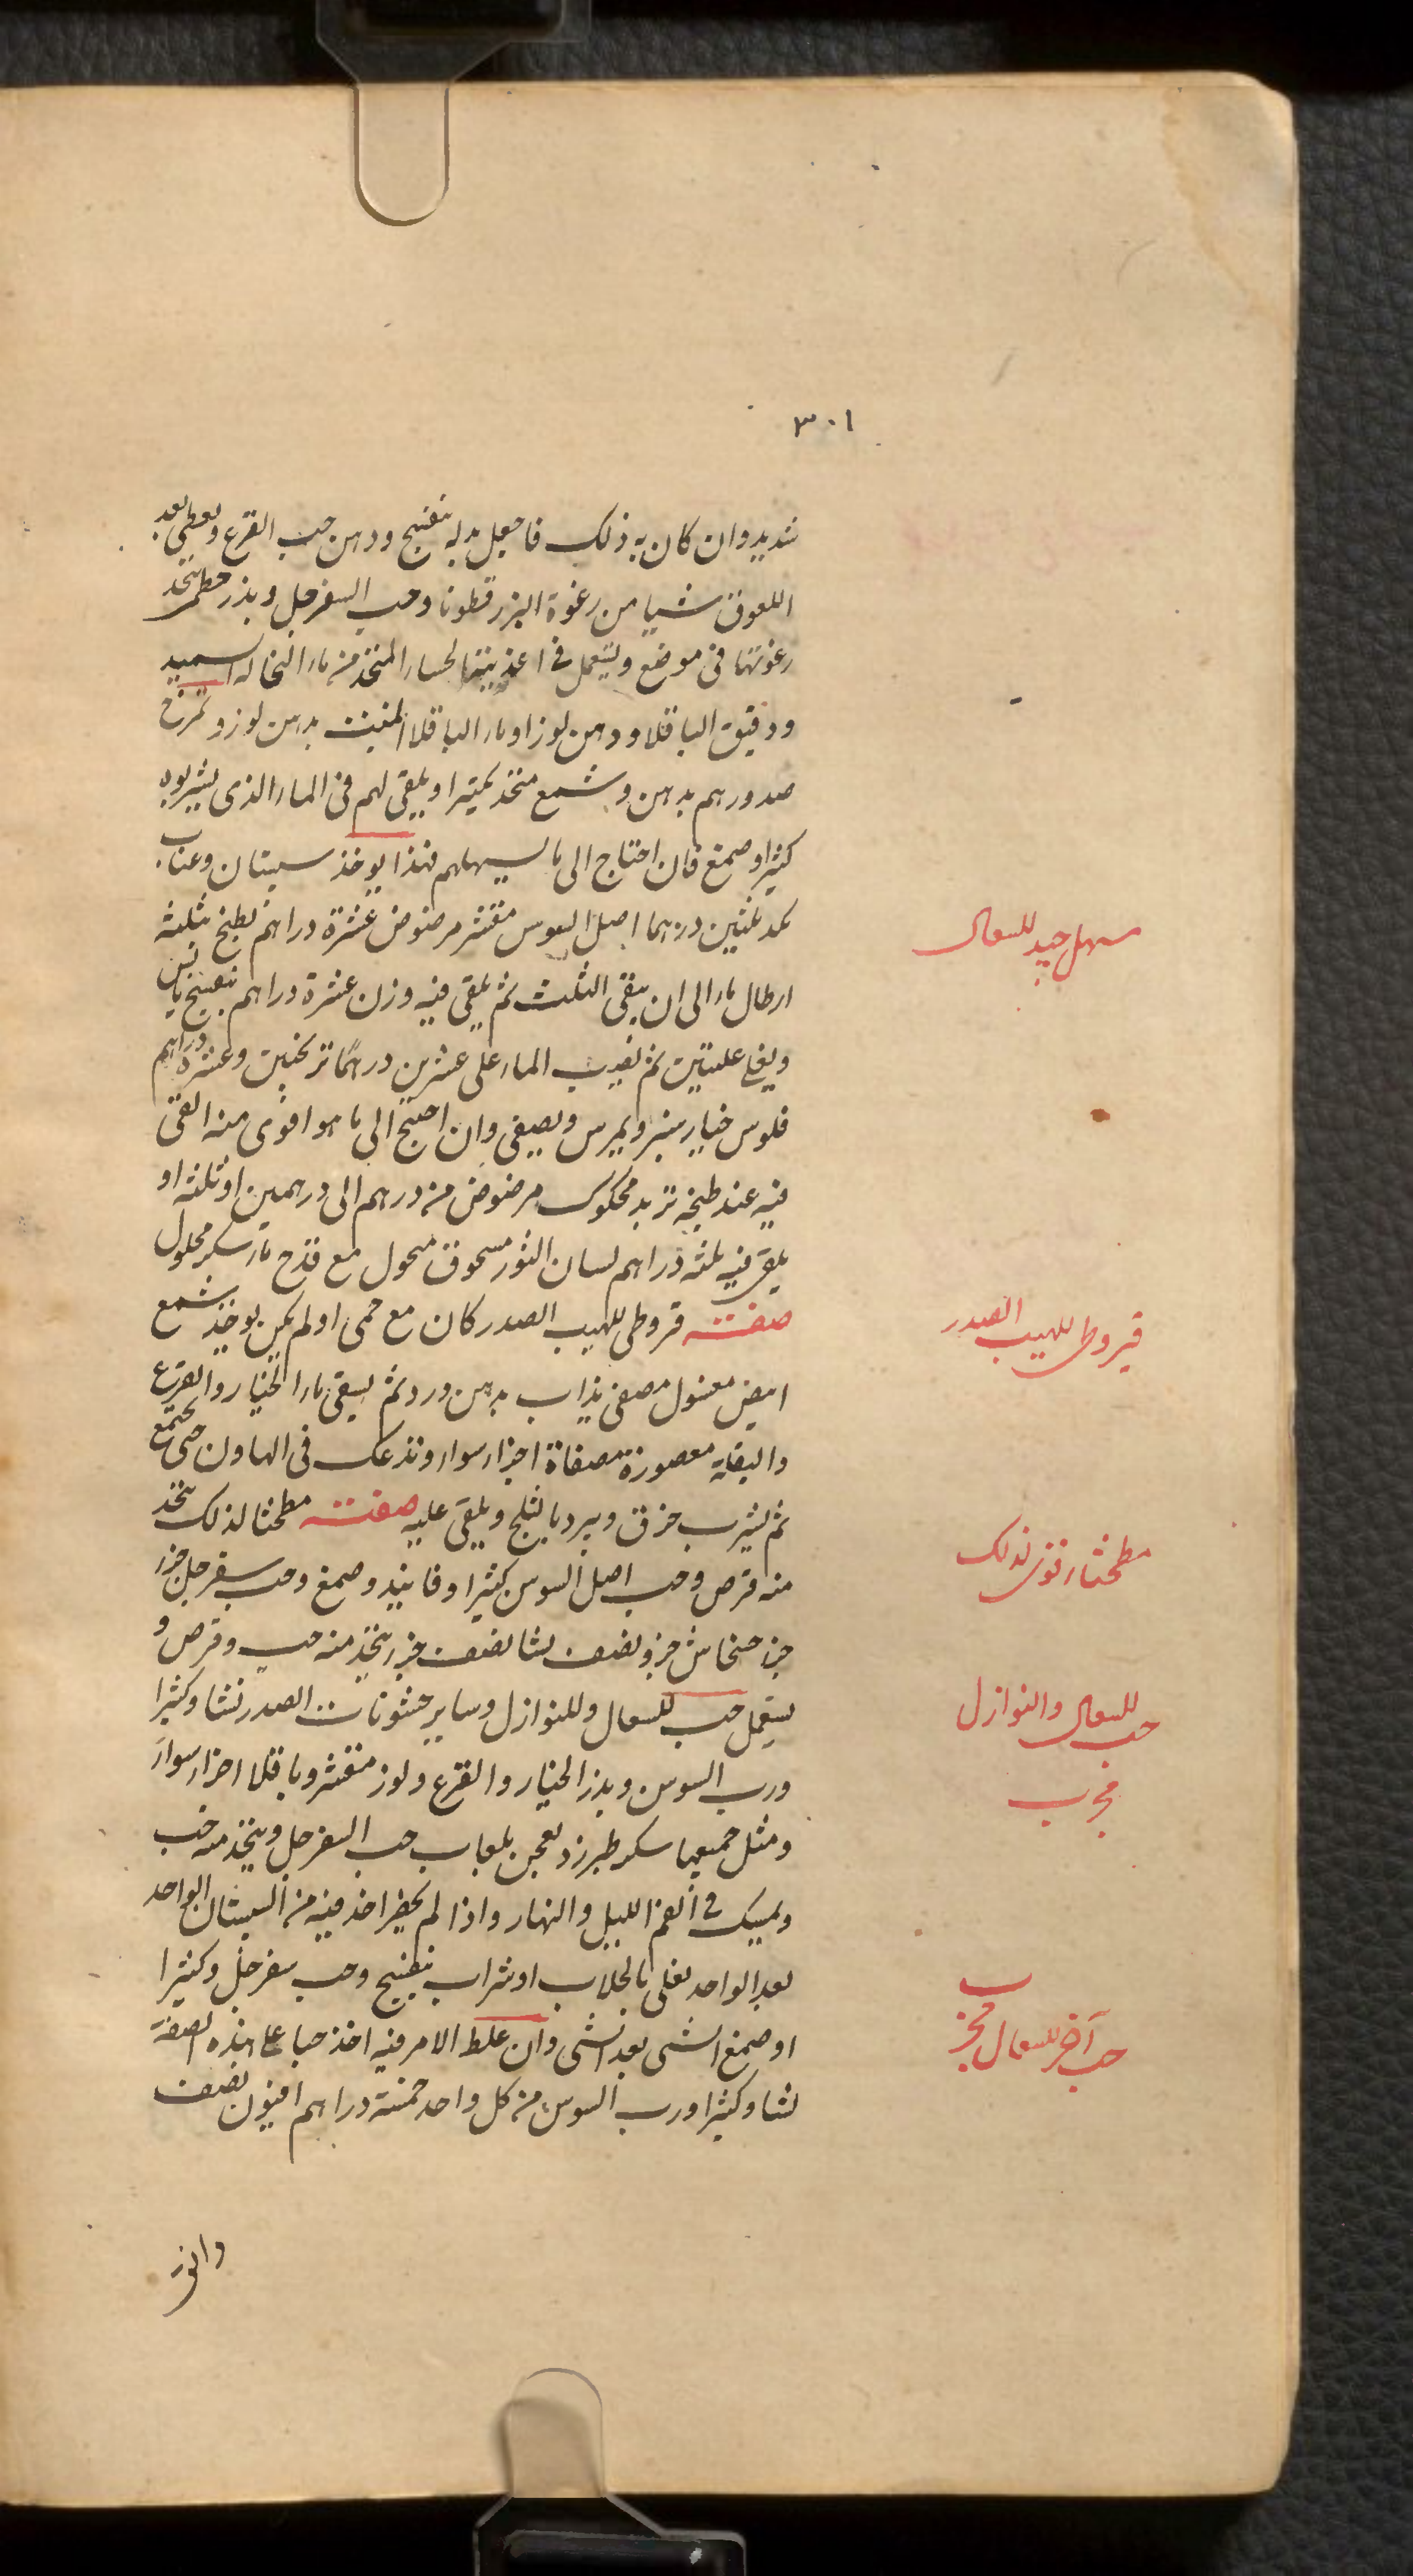 ٣٠١
شديد وان كان به ذلك فاجعل بدله بنفسج ودهن حب القرع ويعطى بعد
اللعوق شيا من رغوة البزر قطونا وحب السفرجل وبذر خطمى تتخذ
رغوتها فى موضع ويستعمل فى اغذيتها لحساء المتخذ من ماء النخاله السميد
ودقيق الباقلا ودهن لوز او ماء الباقلا المنبت بدهن لوز وتمرخ
صدورهم بدهن وشمع متخذ بكثيرا ويلقى لهم فى الماء الذى يشربوه
كثيرا وصمغ فان احتاج الى ما يسهلهم فهذا يوخذ سبستان وعناب
مسهل جيد للسعال
كمد ثلثين درهما اصل السوس مقشر مرضوض عشرة دراهم يطبخ بثلثة
ارطال ماء الى ان يبقى الثلث ثم يلقى فيه وزن عشرة دراهم بنفسج يابس
ويغلى غليتين ثم يصب الماء على عشرين درهما ترنجبين وعشرة دراهم
فلوس خيار شنبر ويمرس ويصفى وان احتيج الى ما هو اقوى منه القى
فيه عند طبخه تربد محكوك مرضوض من درهم الى درهمين او ثلثه او
يلقى فيه ثلثه دراهم لسان الثور مسحوق منحول مع قدح ماء سكر محلول
صفته قروطى للهيب الصدر كان مع حمى او لم يكن يوخذ شمع
قيروطى للهيب الصدر
ابيض مغسول مصفى يذاب بدهن ورد ثم يسقى ماء الخيار والقرع
والبقلة معصورة مصفاة اجزاء سواء وتدعك فى الهاون حتى يجتمع
ثم يشرب خرق ويبرد بالثلج ويلقى عليه صفته مطحثا لذلك يتخذ
مطحثا قوى لذلك
منه قرص وحب اصل السوس كثيرا وفانيد وصمغ وحب سفرجل جزء
جزء خشخاش جزء ونصف نشا نصف جزء يتخذ منه حب وقرص و
يستعمل حب للسعال وللنوازل وساير خشونات الصدر نشا وكثيرا
حب للسعال والنوازل مجرب
ورب السوس وبذر الخيار والقرع ولوز مقشر وباقلا اجزاء سواء
ومثل جميعها سكر طبرزد يعجن بلعاب حب السفرجل ويتخذ منه حب
ويمسك فى الفم الليل والنهار واذا لم يحضر اخذ فيه من السبستان الواحد
بعد الواحد يغلى بالجلاب او شراب بنفسج وحب سفرجل وكثيرا
او صمغ الشى بعد الشى وان غلظ الامر فيه اخذ حبا على هذه الصفة
حب آخر للسعال مجرب
نشا وكثيرا ورب السوس من كل واحد خمسة دراهم افيون نصف